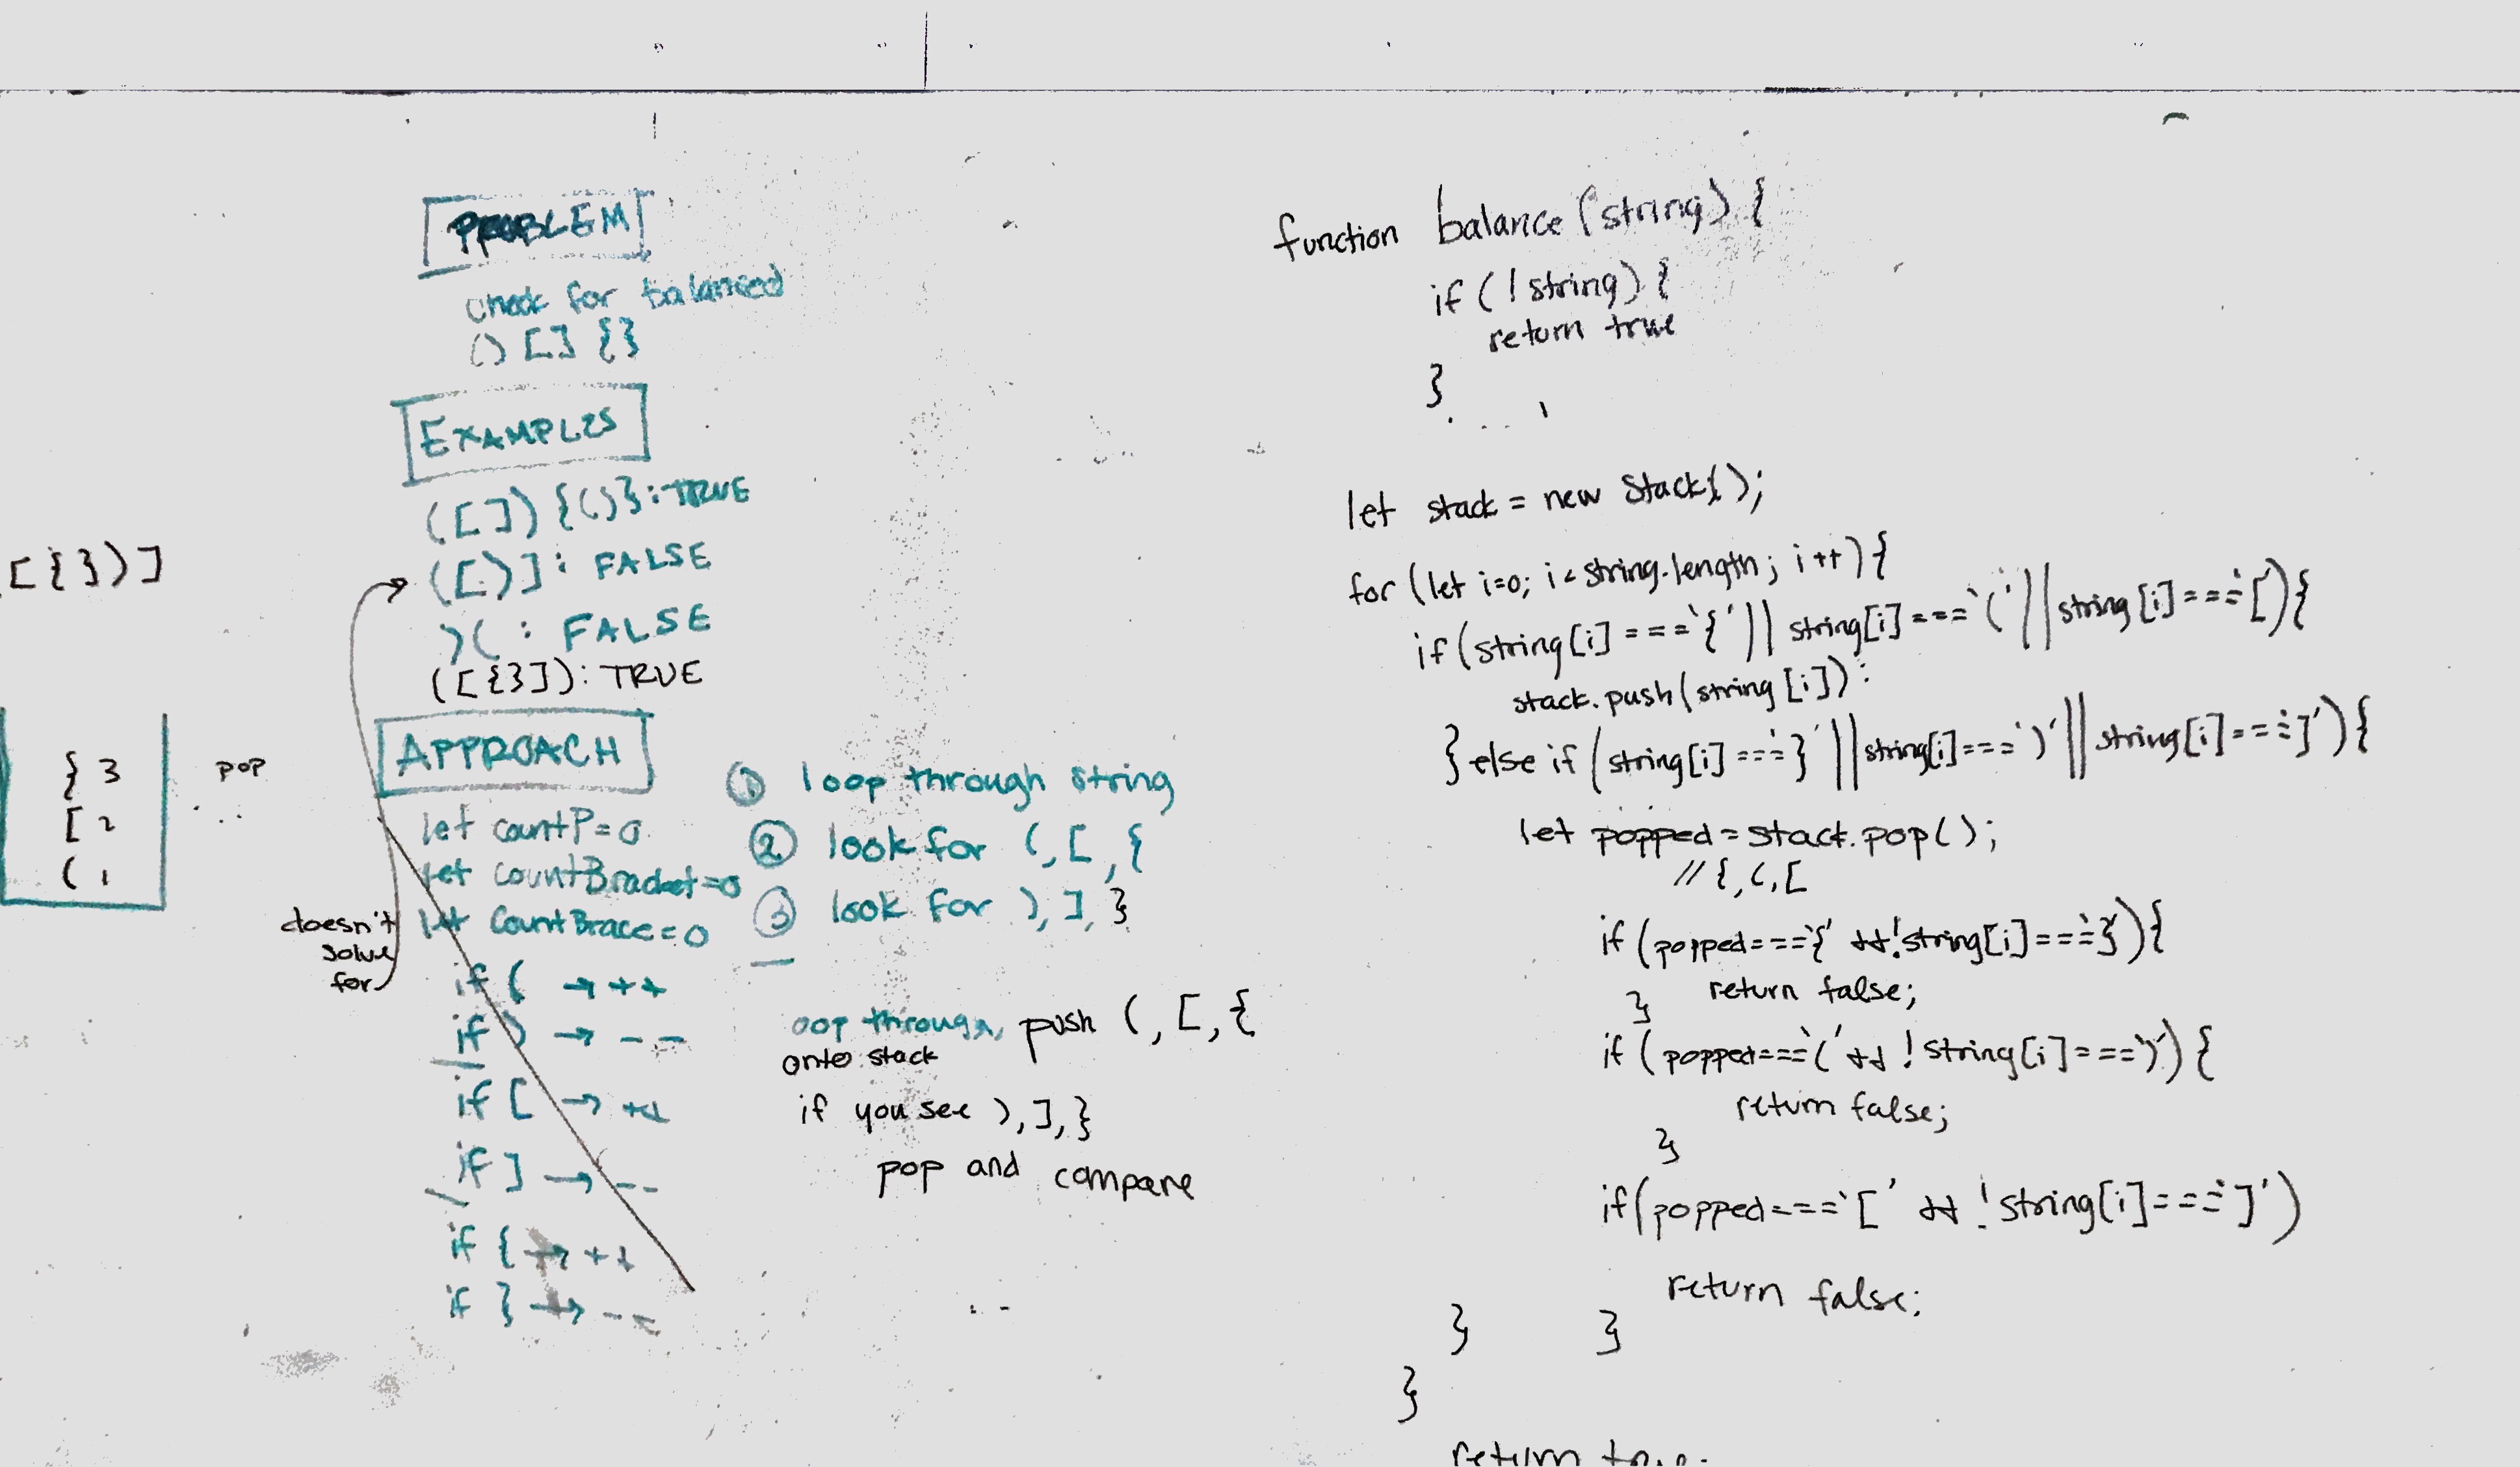 PROBLEM
check for balanced
() [] {}
EXAMPLES
([]) {()} : TRUE
([)] : FALSE
)( : FALSE
([{}]) : TRUE
[{})]
{ 3
[ 2
( 1
pop
doesn't
solve
for
APPROACH
let countP = 0
let countBracket = 0
let countBrace = 0
if ( → ++
if ) → --
if [ → ++
if ] → --
if { → ++
if } → --
① loop through string
② look for (, [, {
③ look for ), ], }
oop through, push (, [, {
onto stack
if you see ), ], }
pop and compare
function balance (string) {
if (!string) {
return true
}
let stack = new Stack();
for (let i=0; i < string.length; i++) {
if (string[i] === '{' || string[i] === '(' || string[i] === '[') {
stack.push(string[i]);
} else if (string[i] === '}' || string[i] === ')' || string[i] === ']') {
let popped = stack.pop();
// {, (, [
if (popped === '{' && !string[i] === '}') {
return false;
}
if (popped === '(' && !string[i] === ')') {
return false;
}
if (popped === '[' && !string[i] === ']')
return false;
} }
}
return